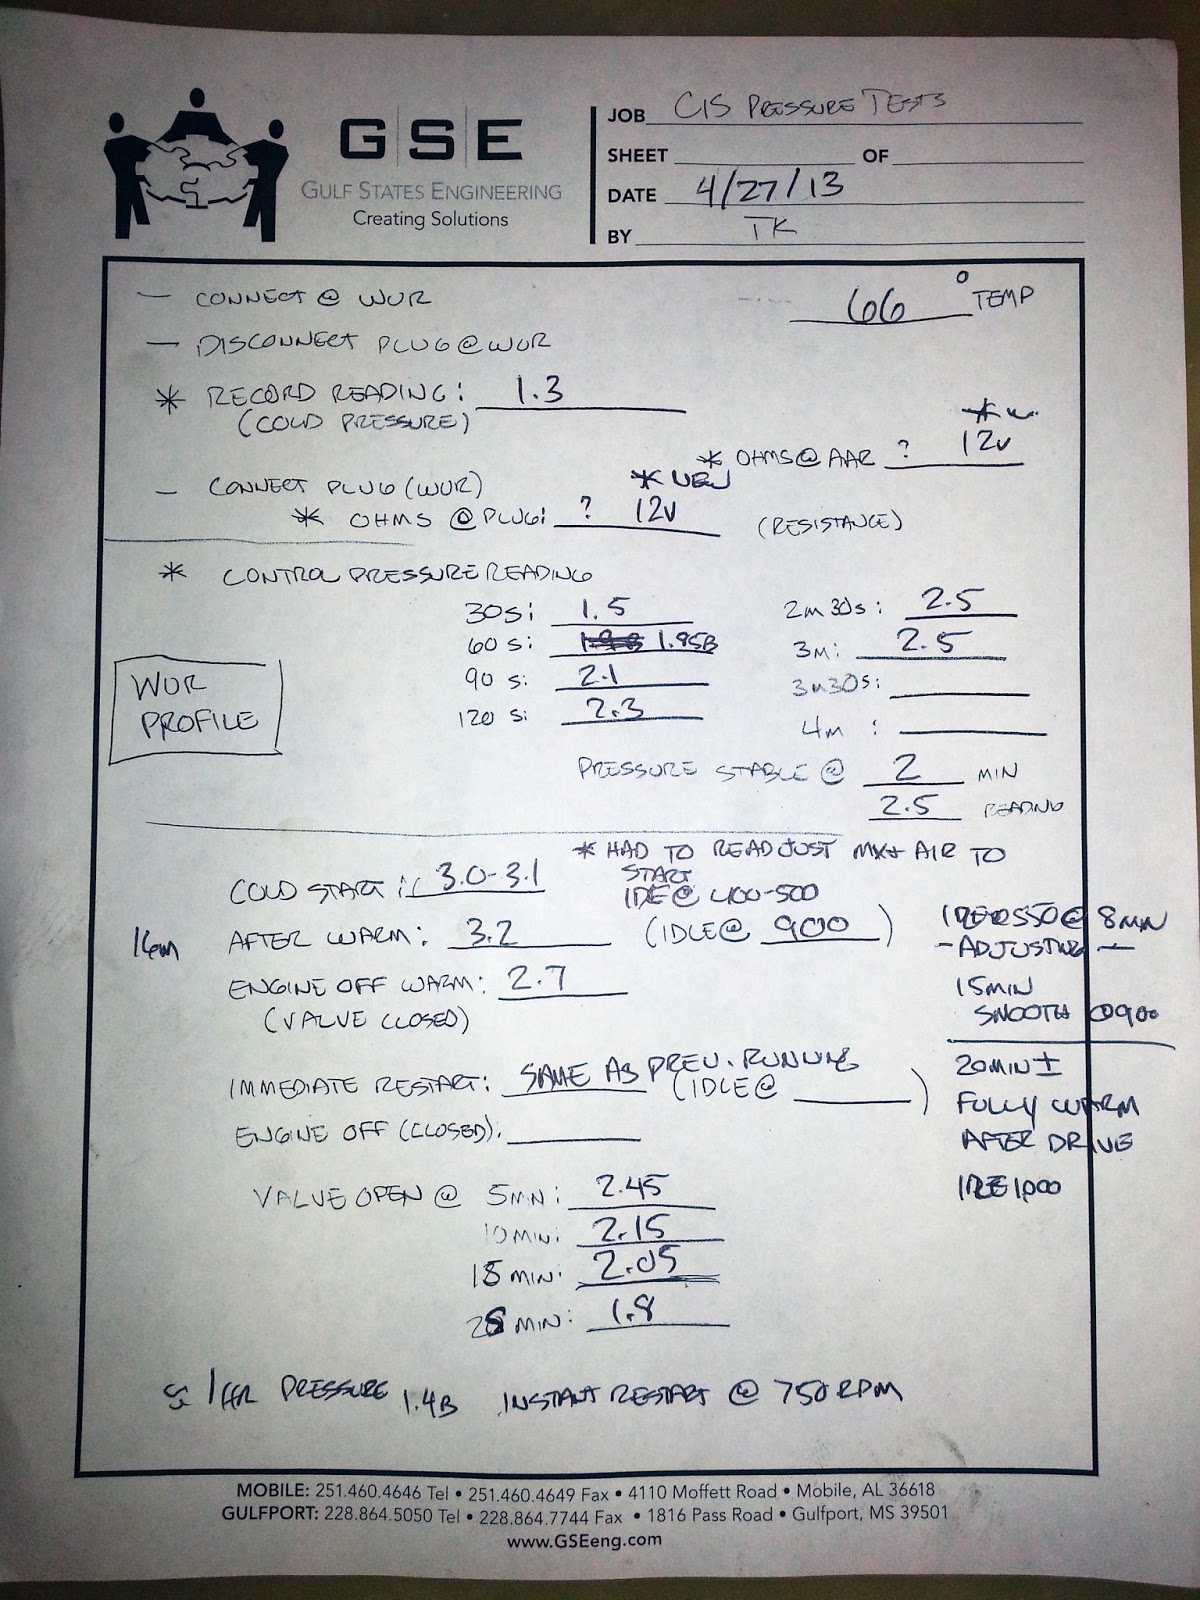 GSE
GULF STATES ENGINEERING
Creating Solutions
JOB CIS PRESSURE TESTS
SHEET OF
DATE 4/27/13
BY TK
— CONNECT @ WUR
66° TEMP
— DISCONNECT PLUG @ WUR
* RECORD READING: 1.3
(COLD PRESSURE)
* OHMS @ AAR ? 12V
— CONNECT PLUG (WUR)
* OHMS @ PLUG: ? 12V (RESISTANCE)
* CONTROL PRESSURE READING
30s: 1.5
60s: 1.95B
90s: 2.1
120s: 2.3
2m30s: 2.5
3m: 2.5
3m30s:
4m:
WUR
PROFILE
PRESSURE STABLE @ 2 MIN
2.5 READING
* HAD TO READJUST MIX + AIR TO
START
IDLE @ 400-500
COLD START: 3.0-3.1
16m AFTER WARM: 3.2 (IDLE @ 900)
ENGINE OFF WARM: 2.7
(VALVE CLOSED)
IMMEDIATE RESTART: SAME AS PREV. RUNNING (IDLE @ )
ENGINE OFF (CLOSED):
VALVE OPEN @ 5MIN: 2.45
10MIN: 2.15
15 MIN: 2.05
25 MIN: 1.8
1HR PRESSURE 1.4B INSTANT RESTART @ 750 RPM
@ 8MIN
- ADJUSTING -
15MIN
SMOOTH @ 900
20MIN ±
FULLY WARM
AFTER DRIVE
IDLE 1000
MOBILE: 251.460.4646 Tel • 251.460.4649 Fax • 4110 Moffett Road • Mobile, AL 36618
GULFPORT: 228.864.5050 Tel • 228.864.7744 Fax • 1816 Pass Road • Gulfport, MS 39501
www.GSEeng.com